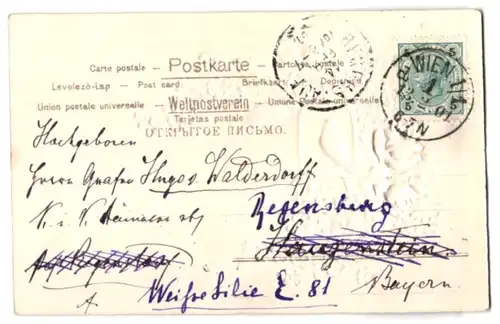 Carte postale - Postkarte - Cartolina postale
Levelező-Lap - Post card Briefkaart - Dopisnice
Union postale universelle - Weltpostverein - Unione Postale universale
Tarjetas postale
ОТКРЫТОЕ ПИСЬМО.
WIEN
Hochgeboren
Herrn Grafen Hugo v. Walderdorff
K. u. K.
Regensburg
Hauzenstein
Bayern.
Weisse Lilie E. 81